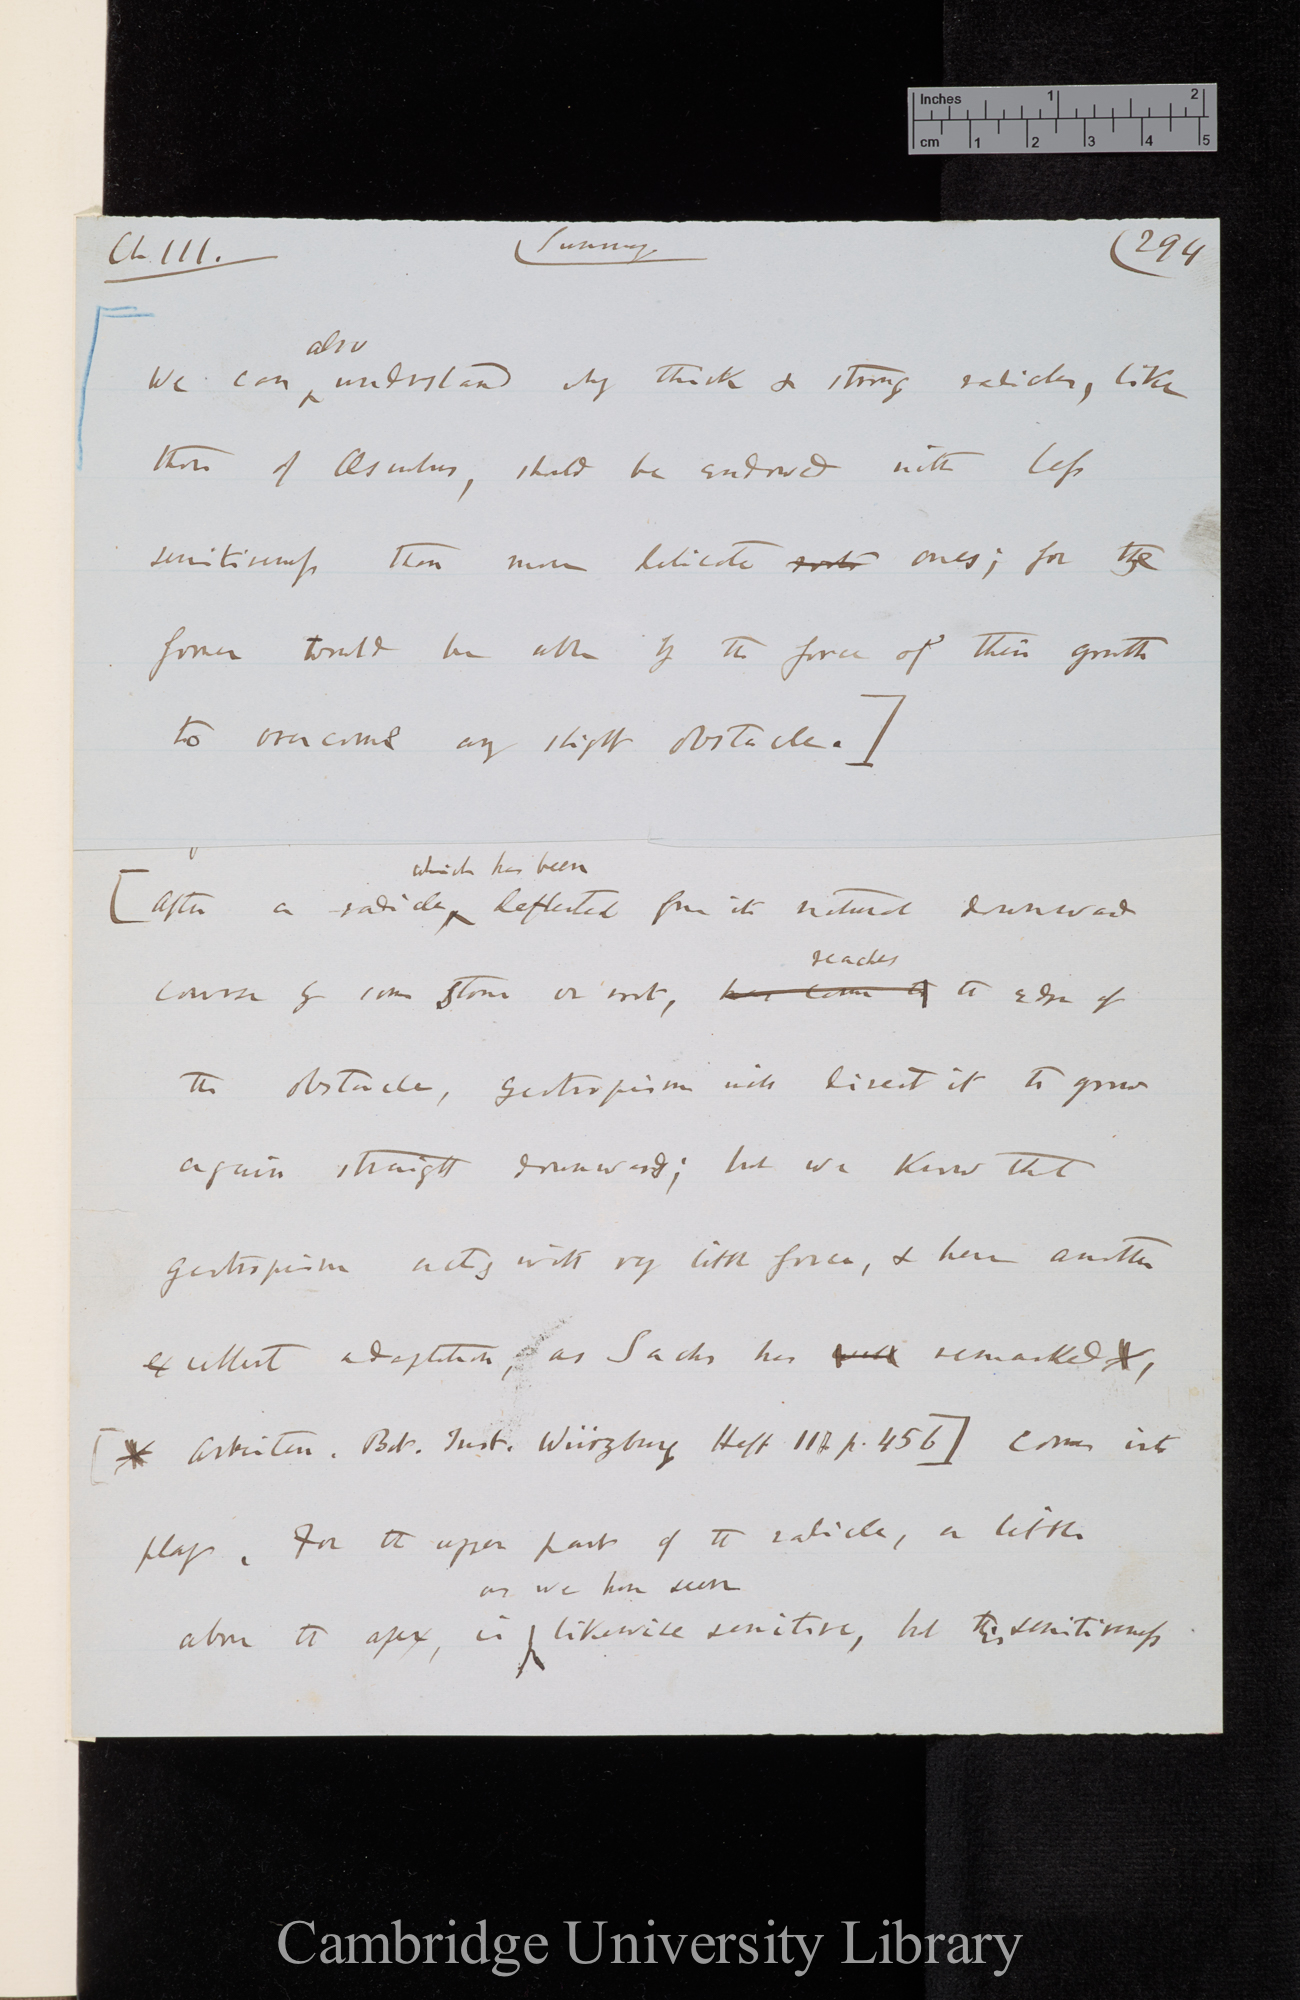 Inches 1 2
cm 1 2 3 4 5
Ch. III. Summary (294
also
We can ^ understand why thick & strong radicles, like
those of Æsculus, should be endowed with less
sensitiveness than more delicate roots ones; for the
former would be able by the force of their growth
to overcome any slight obstacle.]
which has been
[After a radicle, ^ deflected from its natural downward
reaches
course by some stone or root, has come to the edge of
the obstacle, geotropism will direct it to grow
again straight downward; but we know that
geotropism acts with very little force, & here another
excellent adaptation, as Sachs has well remarked*,
[* Arbeiten. Bot. Inst. Würzburg Heft III p. 456] comes into
play. For the upper part of the radicle, a little
as we have seen
above the apex, is ^ likewise sensitive, but this sensitiveness
Cambridge University Library